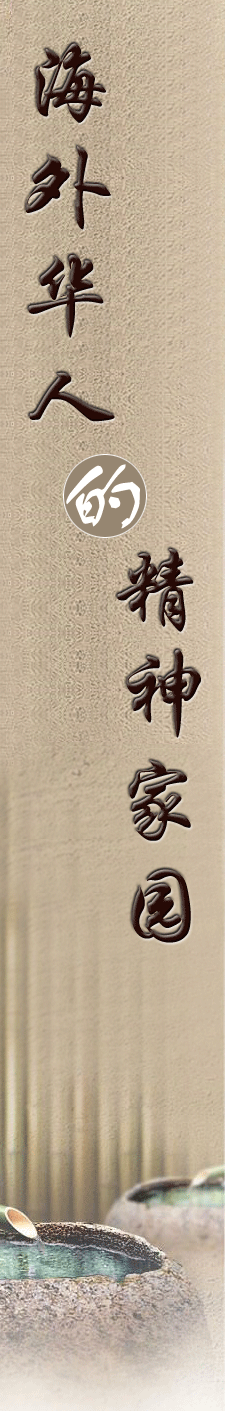 海外华人
的
精神家园